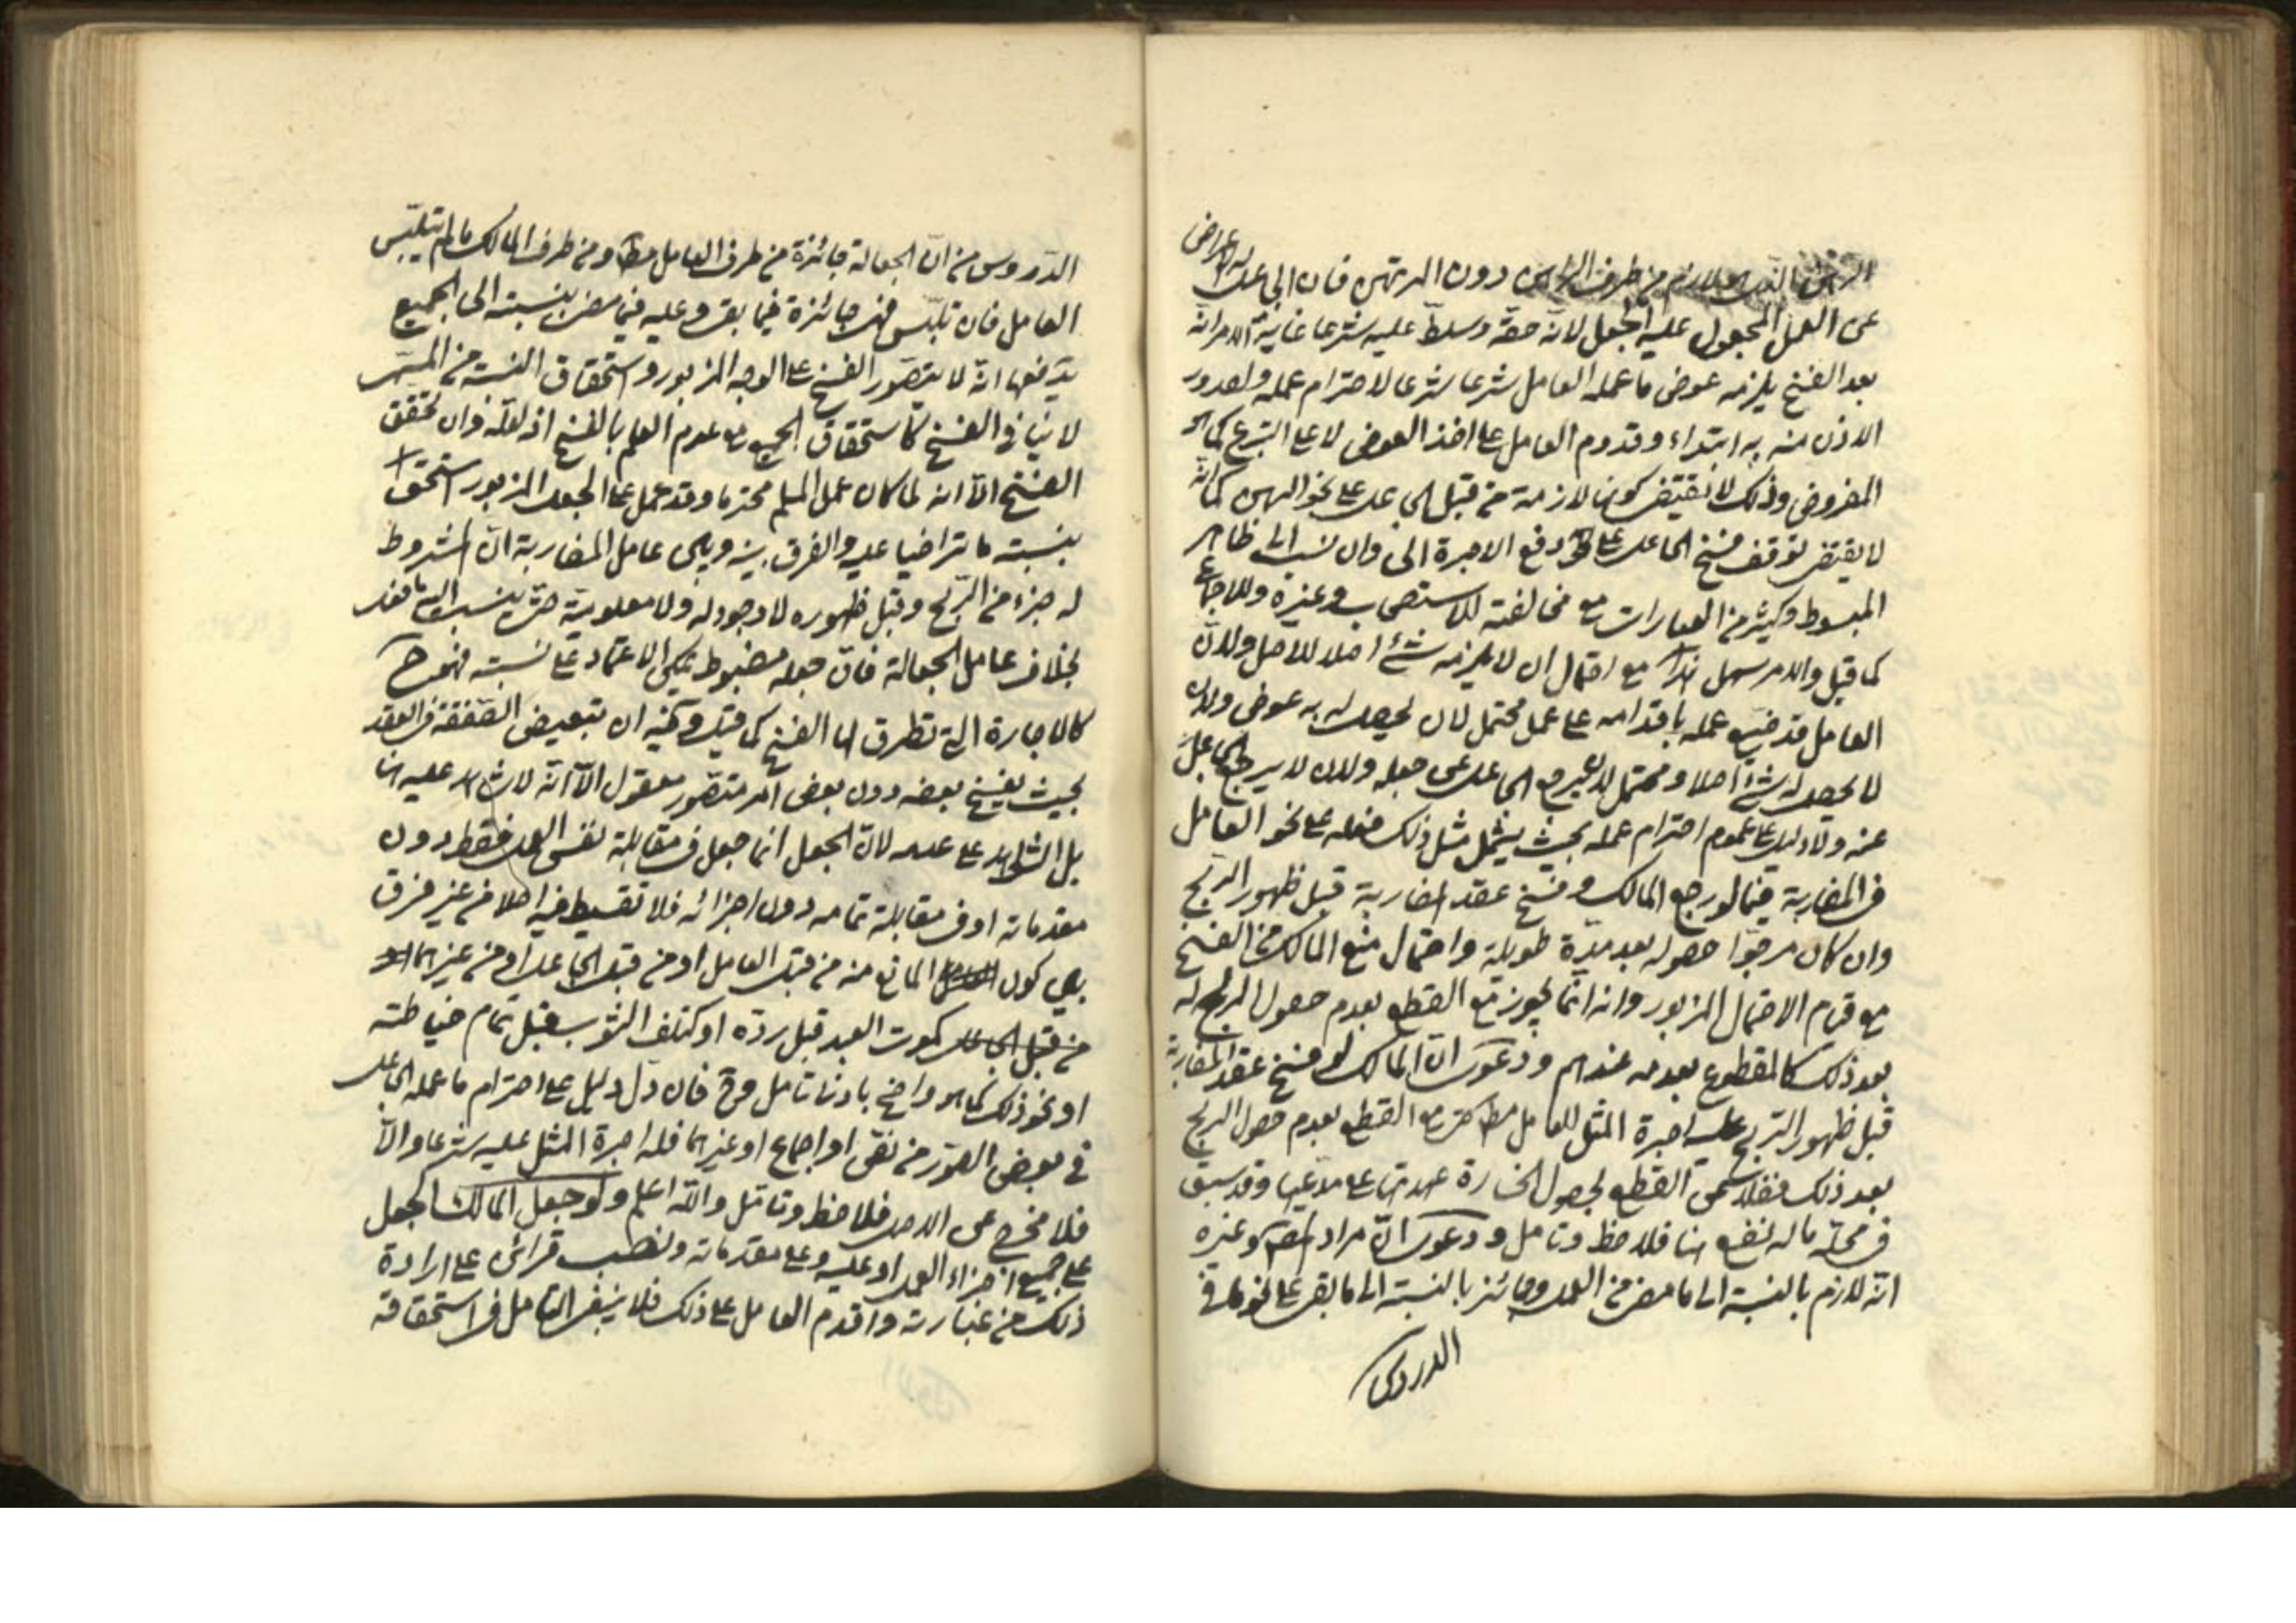 دون المرتهن فان الجاعل له الاعراض
عن العمل المجعول عليه الجعل لانه حقه وسلط عليه شرعا غاية الامر انه
بعد الفسخ يلزمه عوض ما عمله العامل شرعا شرعا لاحترام عمله ولصدور
الاذن منه به ابتداء وقدوم العامل على اخذ العوض لا على التبرع كما هو
المفروض وذلك لا يقتضى كونها لازمة من قبل الجاعل على نحو الرهن كما انه
لا يقتضى توقف فسخ الجاعل على دفع الاجرة الى وان نسب الى ظاهر
المبسوط وكثير من العبارات مع مخالفته للاستصحاب وغيره وللاجماع
كما قيل والامر سهل هذا مع احتمال ان لا يلزمه شئ اصلا للاصل ولان
العامل قد ضيع عمله باقدامه على عمل محتمل لان يحصل له به عوض ولان
لا يحصل له شئ اصلا ومحتمل لان يرجع الجاعل عن جعله ولان لا يرجع الجاعل
عنه ولا دليل على عموم احترام عمله بحيث يشمل مثل ذلك فعله على نحو العامل
فى المضاربة فيما لو رجع المالك وفسخ عقد المضاربة قبل ظهور الربح
وان كان مرجوا حصوله بعد مدة طويلة واحتمال منع المالك من الفسخ
مع قيام الاحتمال المزبور وانه انما يجوز مع القطع بعدم حصول الربح له
بعد ذلك كالمقطوع بعدمه عندهم ودعوى ان المالك لو فسخ عقد المضاربة
قبل ظهور الربح عليه اجرة المثل للعامل مط حتى مع القطع بعدم حصول الربح
بعد ذلك فضلا عن القطع لحصول الخسارة عهدتها على مدعيها وقد سبق
فى محله ما له نفع هنا فلاحظ وتامل ودعوى ان مراد المص وغيره
انه لازم بالنسبة الى ما مضى من العمل وجائز بالنسبة الى ما بقى على نحو ما فى
الدروس
الدروس من ان الجعالة جائزة من طرف العامل مط ومن طرف المالك ما لم يتلبس
العامل فان تلبس فهى جائزة فيما بقى وعليه فيما مضى بنسبته الى الجميع
يدفعها انه لا يتصور الفسخ على الوجه المزبور واستحقاق النسبة من المسمى
لا ينافى الفسخ كاستحقاق الجميع مع عدم العلم بالفسخ اذ لعله وان تحقق
الفسخ الا انه لما كان عمل المسلم محترما وقد عمل على الجعل المزبور استحق
بنسبة ما تراضيا عليه والفرق بينه وبين عامل المضاربة ان المشروط
له جزء من الربح وقبل ظهوره لا وجود له ولا معلومية حتى ينسب اليه ما فعل
بخلاف عامل الجعالة فان جعله مضبوط يمكن الاعتماد على نسبته فهو ح
كالاجارة التى تطرق لها الفسخ كما قيل وفيه ان تبعيض الصفقة فى العقد
بحيث يفسخ بعضه دون بعض امر متصور معقول الا انه لا شاهد عليه هنا
بل الشاهد على عدمه لان الجعل انما جعل فى مقابلة نفس العمل فقط دون
مقدماته او فى مقابلة تمامه دون اجزائه فلا تقسيط فيه اصلا من غير فرق
بين كون المانع منه من قبل العامل او من قبل الجاعل او من غيرهما
من قبل الجاعل كموت العبد قبل رده او كتلف الثوب قبل تمام خياطته
او نحو ذلك كما هو واضح بادنى تامل وح فان دل دليل على احترام ما عمله الجاعل
فى بعض الصور من نص او اجماع او غيرهما فله اجرة المثل عليه شرعا والا
فلا مخرج عن الاصل فلاحظ وتامل والله اعلم ولو جعل المالك الجعل
على جميع اجزاء العمل او عليه وعلى مقدماته ونصب قرائن على ارادة
ذلك من عبارته واقدم العامل على ذلك فلا ينبغى التامل فى استحقاقه